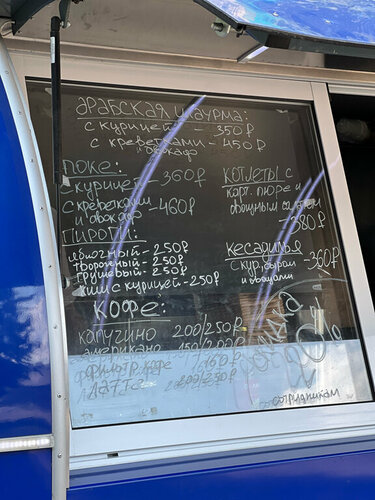 АРАБСКАЯ ШАУРМА:
с курицей - 350₽
с креветками - 450₽
и авокадо
ПОКЕ:
с курицей - 360₽
с креветками
и авокадо - 460₽
ПИРОГИ:
яблочный - 250₽
творожный - 250₽
грушевый - 250₽
киш с курицей - 250₽
КОТЛЕТЫ с
карт. пюре и
овощным
- 380₽
КЕСАДИЛЬЯ
с кур, сыром - 360₽
и овощами
КОФЕ:
капучино 200/250₽
американо 150/200₽
фильтр кофе 160₽
ЛАТТЕ
СКИДКА
20%
СОТРУДНИКАМ